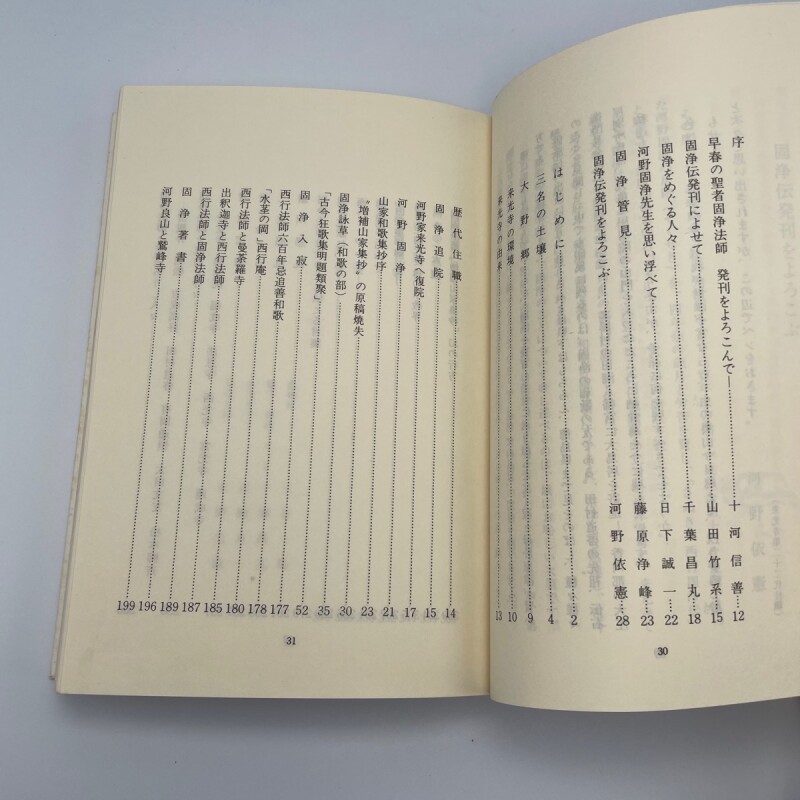 序……十河信善…12
早春の聖者固浄法師 発刊をよろこんで――……山田竹系…15
固浄伝発刊によせて……千葉昌丸…18
固浄をめぐる人々……日下誠一…22
河野固浄先生を思い浮べて……藤原浄峰…23
固浄管見……河野依憲…28
固浄伝発刊をよろこぶ
はじめに……2
三名の土壌……4
大野郷……9
来光寺の環境……10
来光寺の由来……13
30
歴代住職……14
固浄退院……15
河野家来光寺へ復院……17
河野固浄……21
山家和歌集抄序……23
〝増補山家集抄〟の原稿焼失……30
固浄詠草(和歌の部)……35
「古今狂歌集明題類聚」……52
固浄入寂……177
西行法師六百年忌追善和歌……178
「水茎の岡」西行庵……180
西行法師と曼荼羅寺……185
出釈迦寺と西行法師……187
西行法師と固浄法師……189
固浄著書……196
河野良山と鷲峰寺……199
31